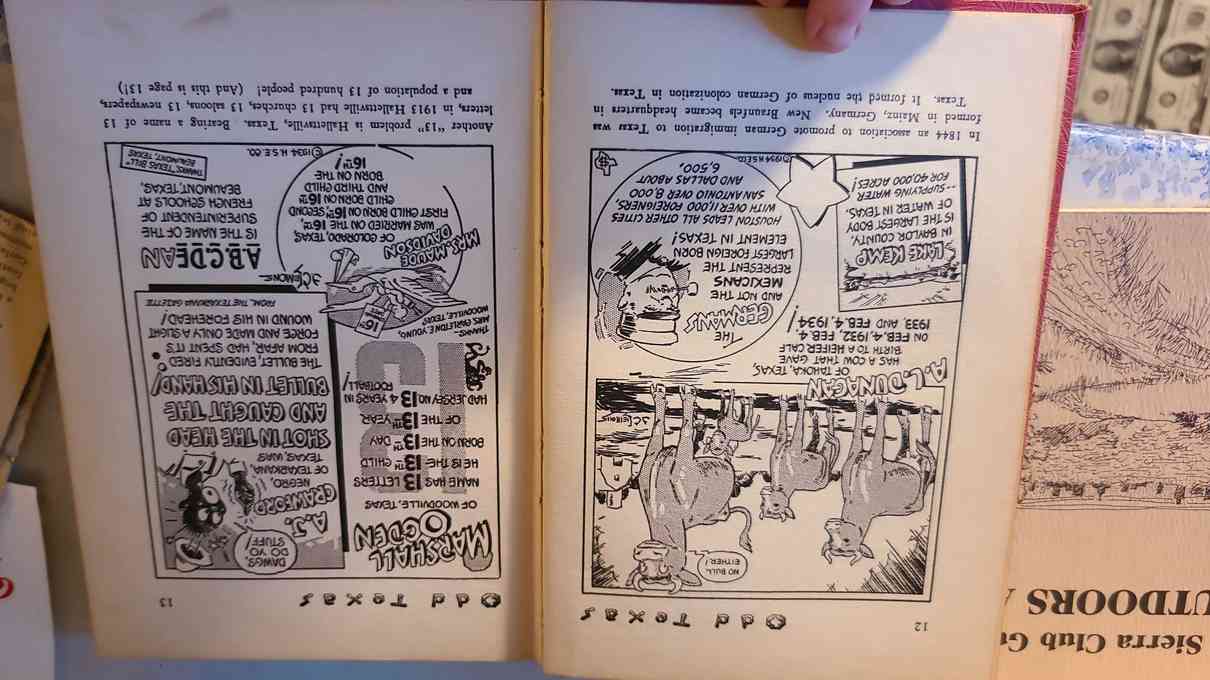 12
Odd Texas
NO BULL-
EITHER!
A. L. DUNAGAN
OF TAHOKA, TEXAS,
HAS A COW THAT GAVE
BIRTH TO A HEIFER CALF
ON FEB. 4, 1932, FEB. 4,
1933, AND FEB. 4, 1934!
LAKE KEMP
IN BAYLOR COUNTY,
IS THE LARGEST BODY
OF WATER IN TEXAS,
--SUPPLYING WATER
FOR 40,000 ACRES!
THE
GERMANS
AND NOT THE
MEXICANS
REPRESENT THE
LARGEST FOREIGN BORN
ELEMENT IN TEXAS!
HOUSTON LEADS ALL OTHER CITIES
WITH OVER 11,000 FOREIGNERS
SAN ANTONIO OVER 8,000
AND DALLAS ABOUT
6,500,
In 1844 an association to promote German immigration to Texas was
formed in Mainz, Germany. New Braunfels became headquarters in
Texas. It formed the nucleus of German colonization in Texas.
Odd Texas
13
MARSHALL
OGDEN
OF WOODVILLE, TEXAS
NAME HAS 13 LETTERS
HE IS THE 13TH CHILD
BORN ON THE 13TH DAY
OF THE 13TH YEAR
HAD JERSEY NO 13 4 YEARS IN
FOOTBALL!
13
THANKS--
MRS. CARLETON E. YOUNG,
WOODVILLE, TEXAS
DAWGS,
DO YO
STUFF
A. J.
CRAWFORD
NEGRO,
OF TEXARKANA,
TEXAS, WAS
SHOT IN THE HEAD
AND CAUGHT THE
BULLET IN HIS HAND!
THE BULLET, EVIDENTLY FIRED
FROM AFAR, HAD SPENT ITS
FORCE AND MADE ONLY A SLIGHT
WOUND IN HIS FOREHEAD!
FROM, THE TEXARKANA GAZETTE
16TH
MRS. MAUDE
DAVIDSON
OF COLORADO, TEXAS,
WAS MARRIED ON THE 16TH,
FIRST CHILD BORN ON 16TH, SECOND
CHILD BORN ON 16TH,
AND THIRD CHILD
BORN ON THE
16TH!
A.B.C.DEAN
IS THE NAME OF THE
SUPERINTENDENT OF
FRENCH SCHOOLS AT
BEAUMONT, TEXAS,
©1934 H.S.E. CO.
THANKS, "TEXAS BILL"
BEAUMONT, TEXAS
Another "13" problem is Hallettsville, Texas. Bearing a name of 13
letters, in 1913 Hallettsville had 13 churches, 13 saloons, 13 newspapers,
and a population of 13 hundred people! (And this is page 13!)
Sierra Club
UTDOORS